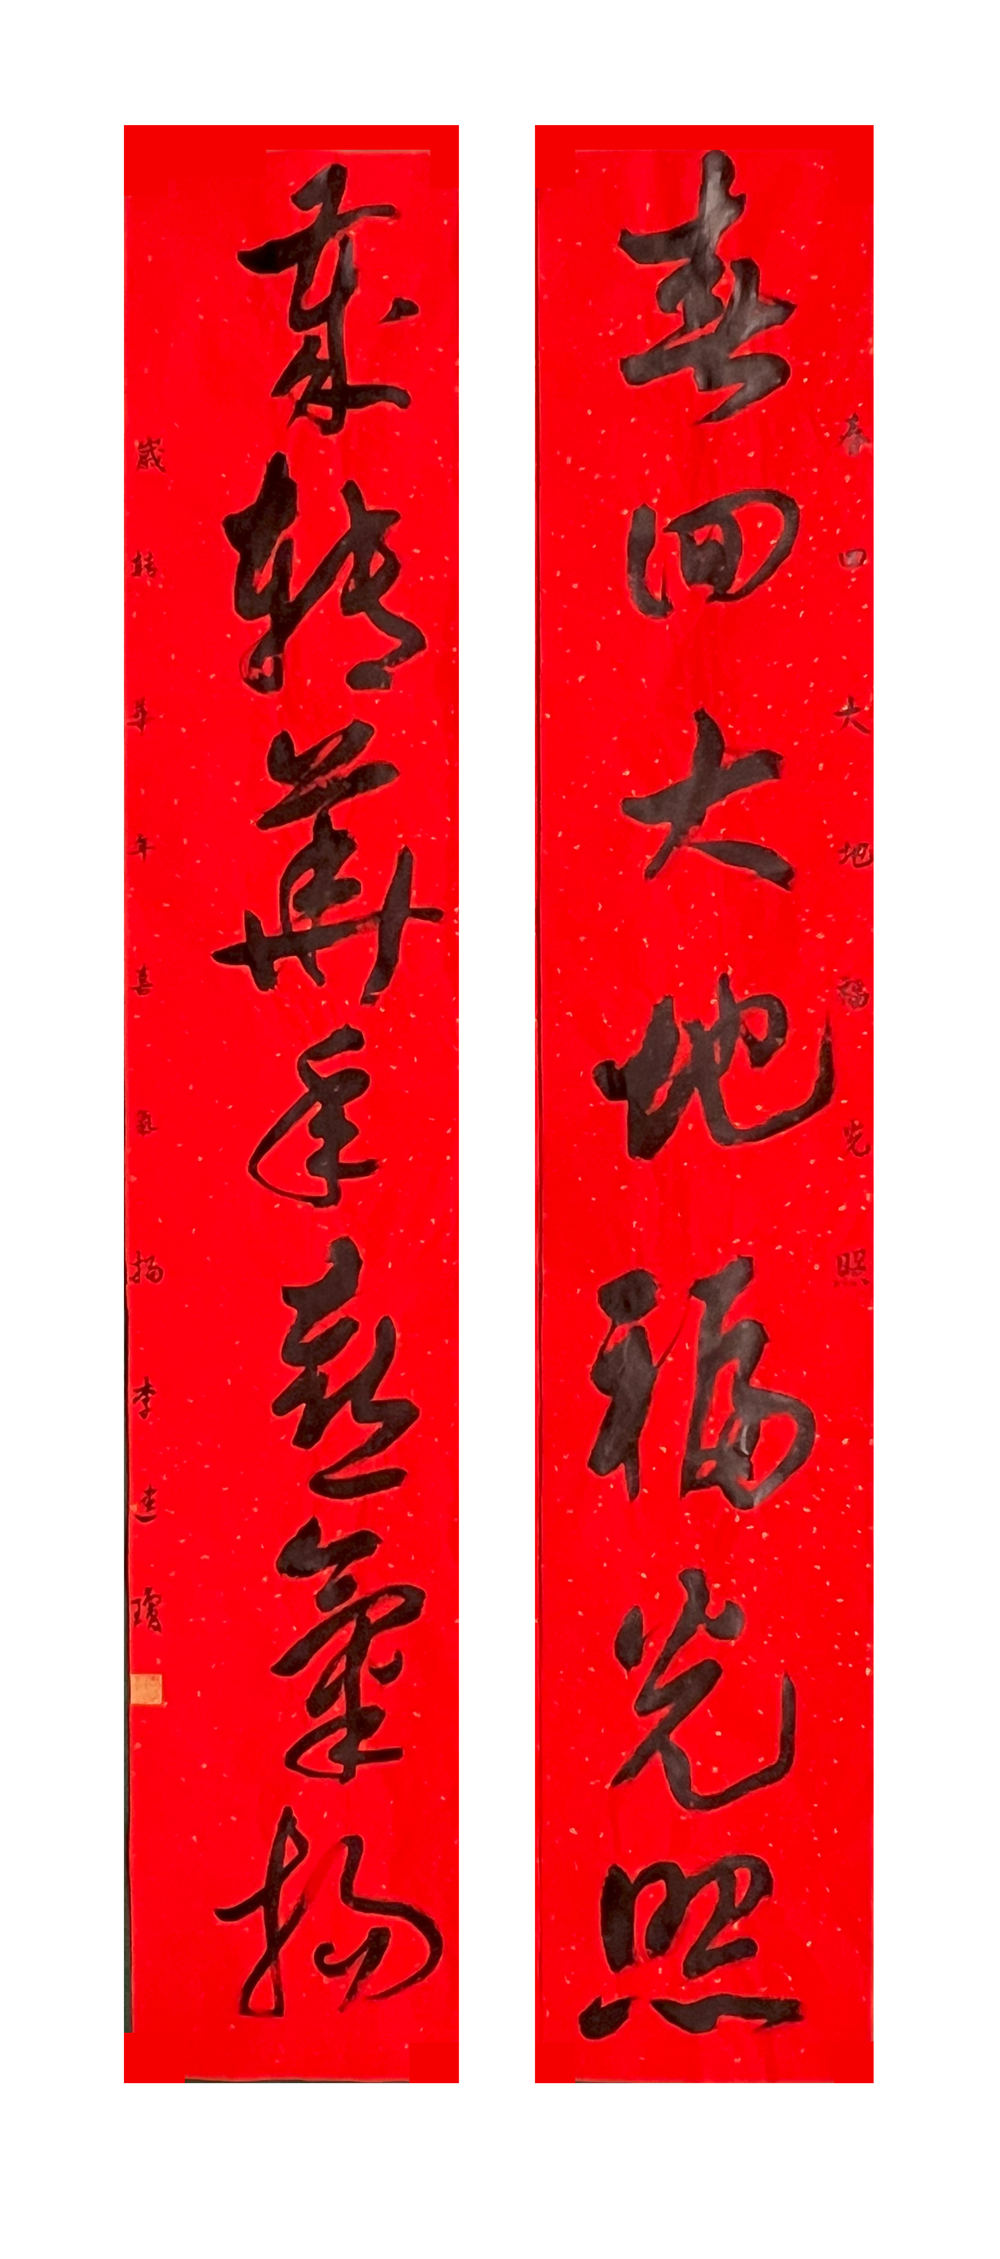 春回大地福光照
春回大地福光照
歲轉華年喜氣揚
歲轉華年喜氣揚 李 瓊